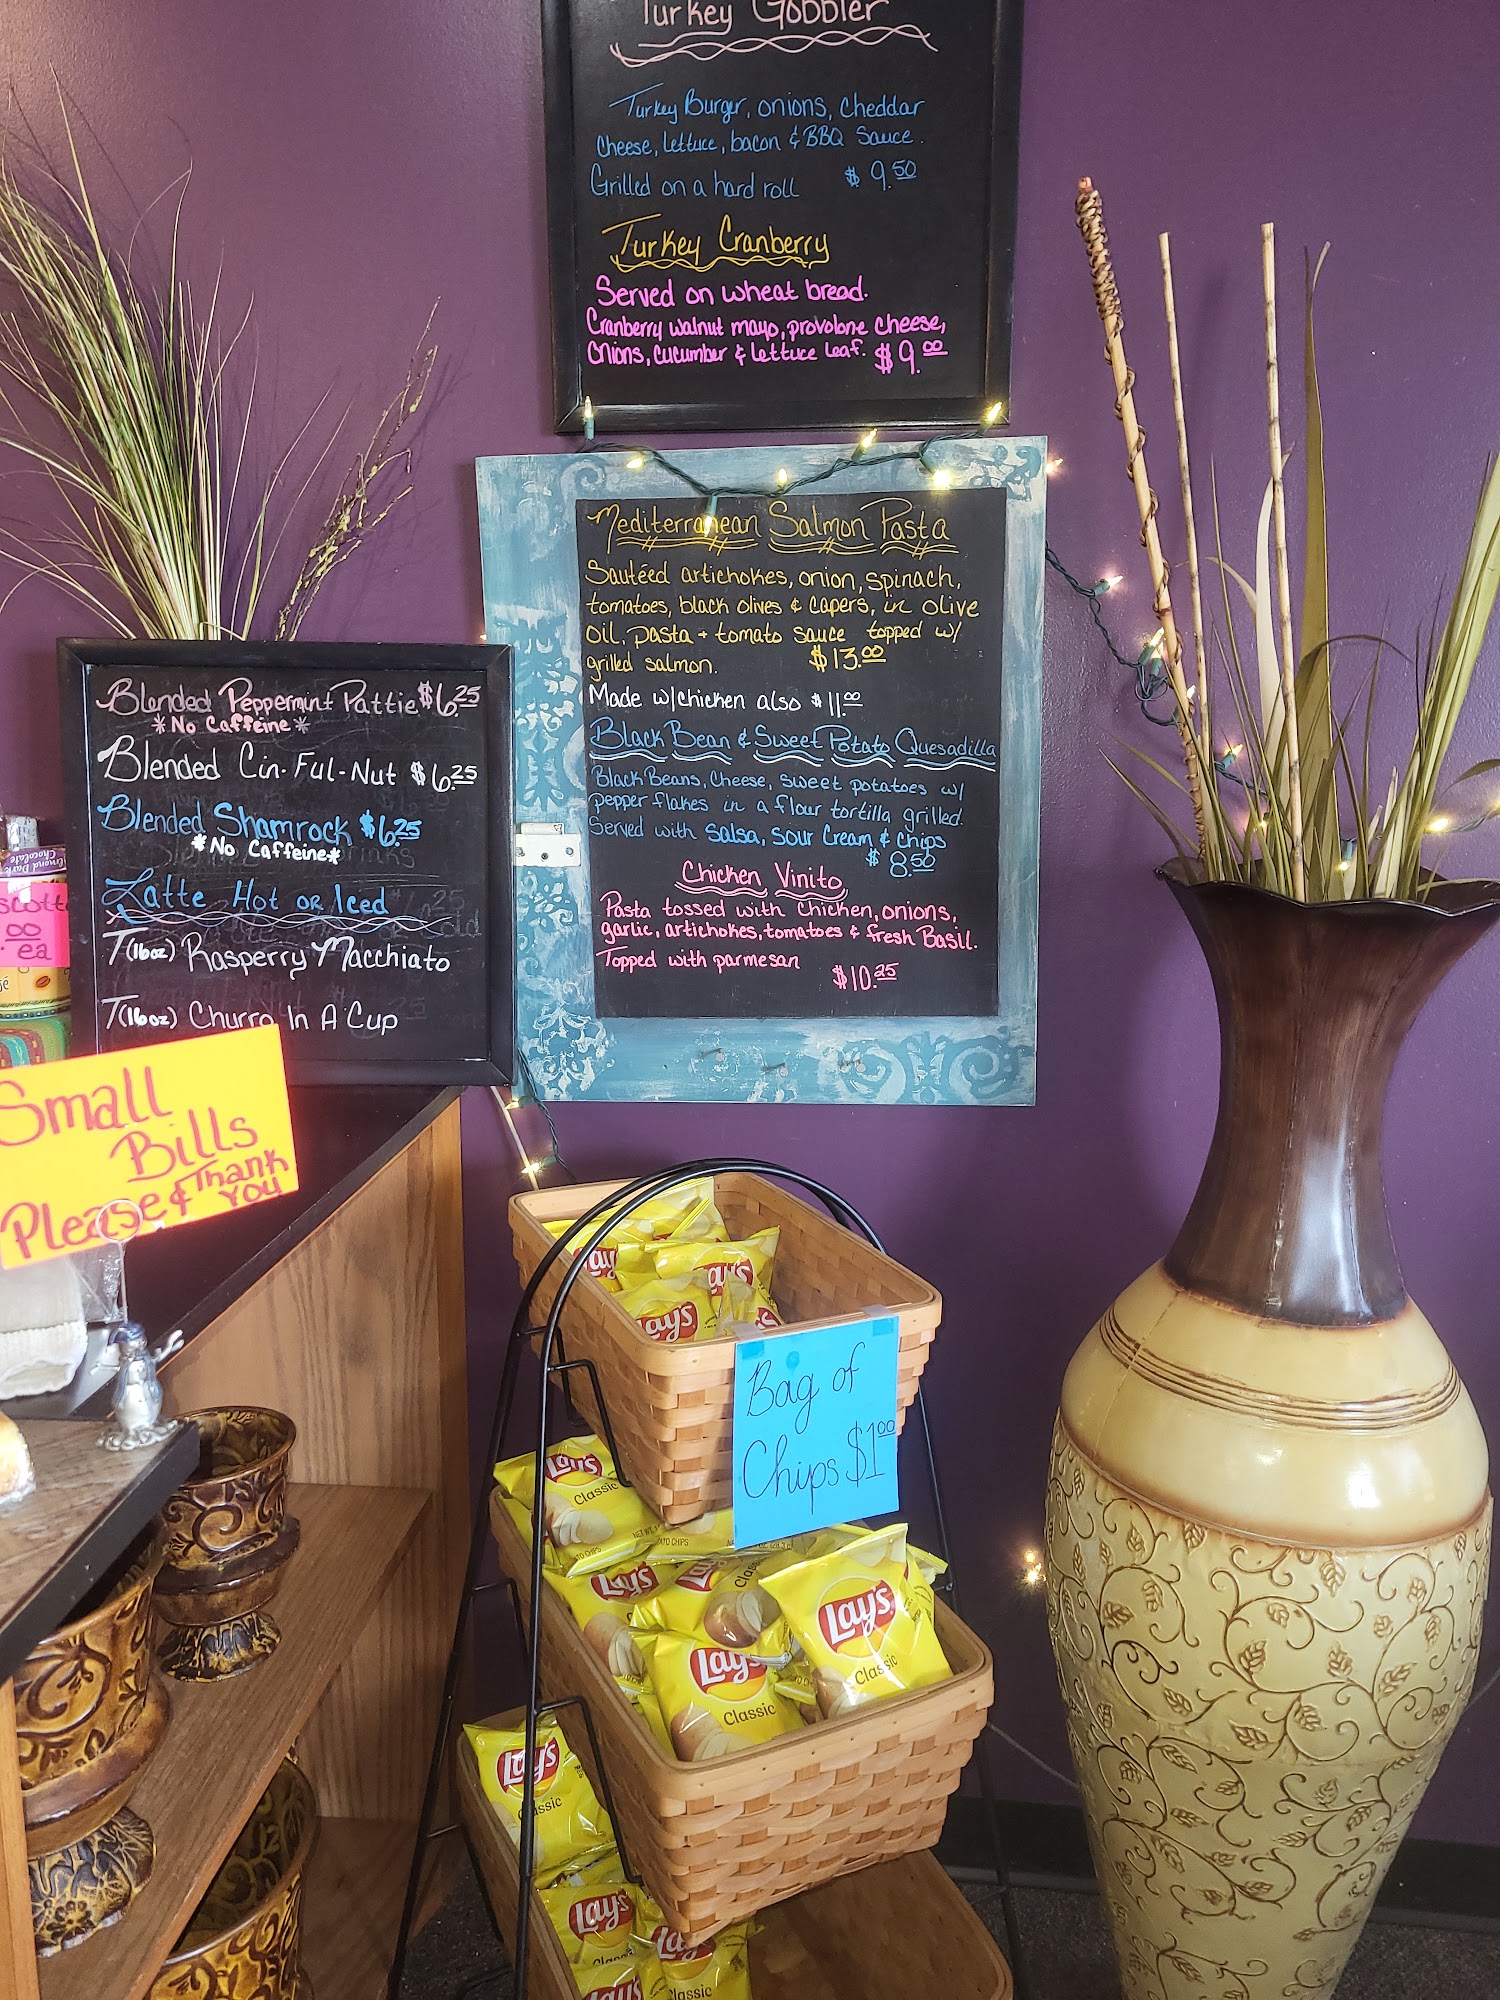 Turkey Gobbler
Turkey Burger, onions, cheddar
cheese, lettuce, bacon & BBQ Sauce.
Grilled on a hard roll $9.50
Turkey Cranberry
Served on wheat bread.
Cranberry walnut mayo, provolone cheese,
onions, cucumber & lettuce leaf. $9.00
Mediterranean Salmon Pasta
Sautéed artichokes, onion, spinach,
tomatoes, black olives & capers, in olive
oil, pasta + tomato sauce topped w/
grilled salmon. $13.00
Made w/chicken also $11.00
Black Bean & Sweet Potato Quesadilla
Black Beans, Cheese, sweet potatoes w/
pepper flakes in a flour tortilla grilled.
Served with salsa, sour cream & chips
$8.50
Chicken Vinito
Pasta tossed with chicken, onions,
garlic, artichokes, tomatoes & fresh Basil.
Topped with parmesan
$10.25
Blended Peppermint Pattie $6.25
*No Caffeine*
Blended Cin-Ful-Nut $6.25
Blended Shamrock $6.25
*No Caffeine*
Latte Hot or Iced
T(16oz) Rasperry Macchiato
T(16oz) Churro In A Cup
Almond Dark
Chocolate
ea
Small
Bills
Please & Thank
You
Bag of
Chips $1.00
Lay's
Lay's
Lay's
Classic
Lay's
Classic
Lay's
Classic
Lay's
Classic
Lay's
Classic
Lay's
Classic